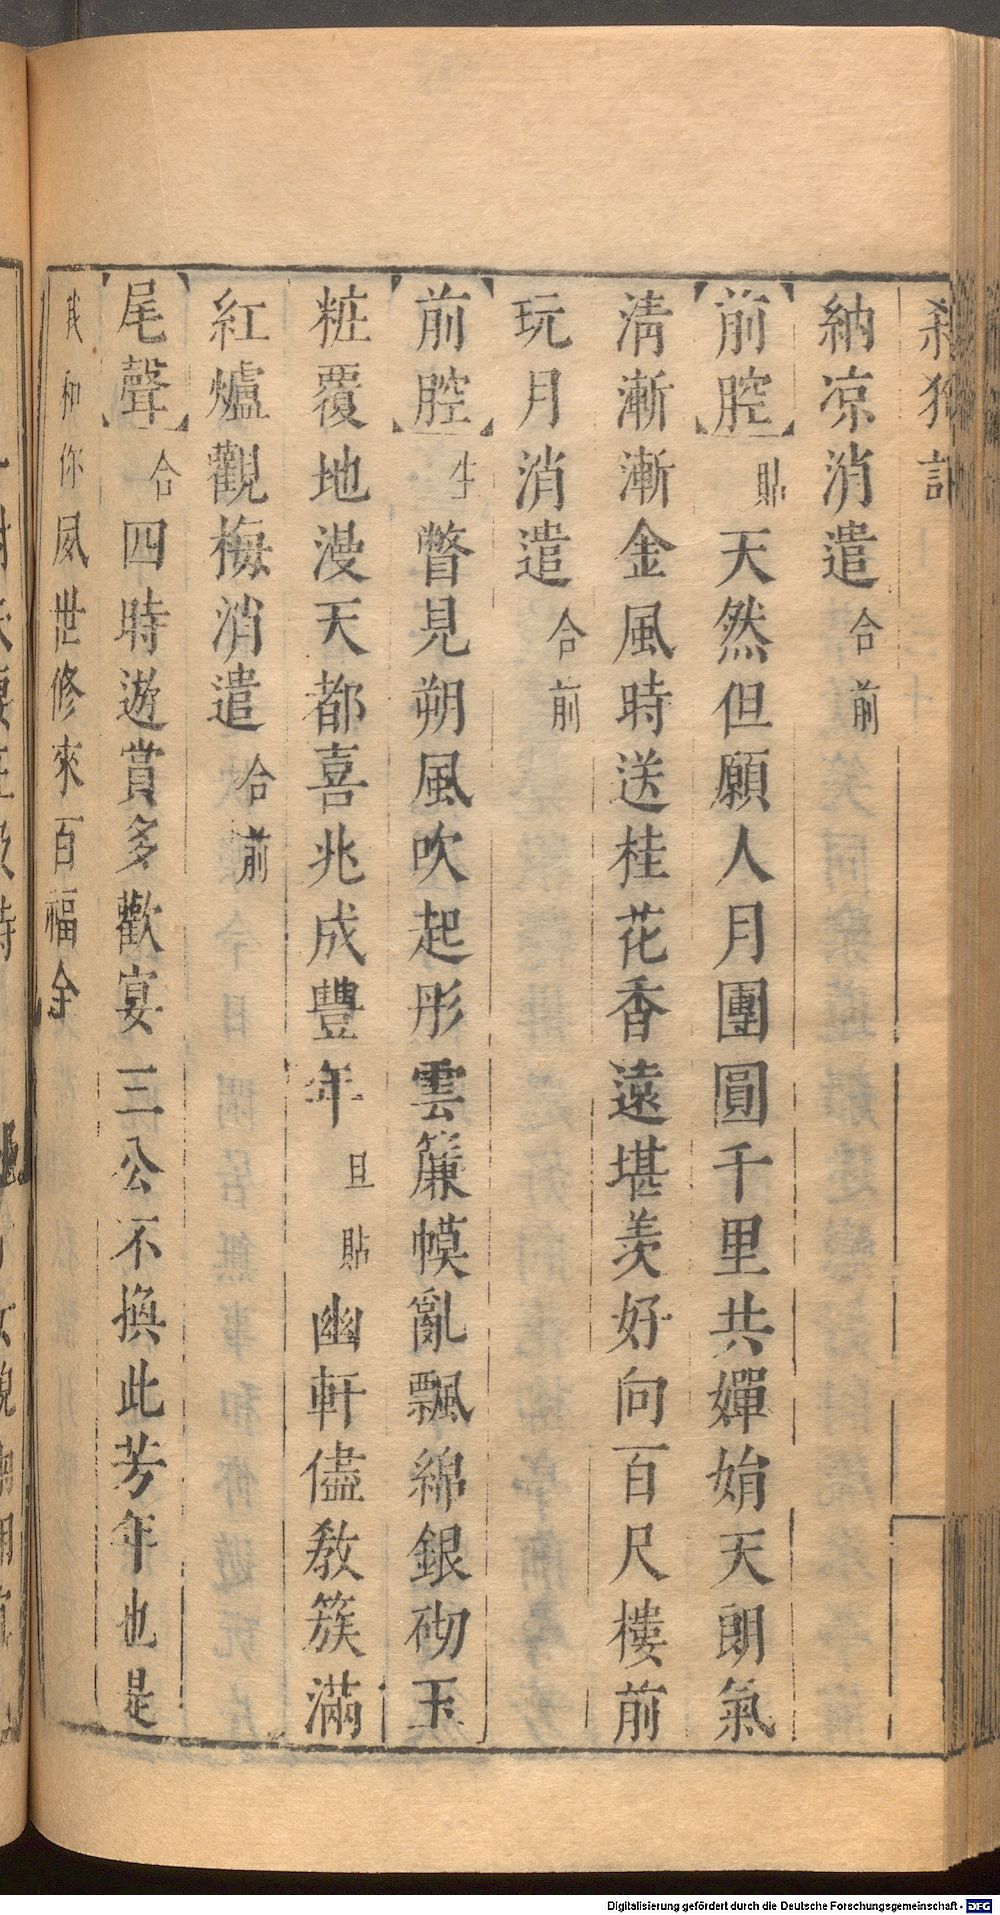 殺狗記
納凉消遣合前
【前腔】貼天然但願人月團圓千里共嬋娟天朗氣
清漸漸金風時送桂花香遠堪羡好向百尺樓前
玩月消遣合前
【前腔】生瞥見朔風吹起彤雲簾幙亂飄綿銀砌玉
粧覆地漫天都喜兆成豐年旦貼幽軒儘教簇滿
紅爐觀梅消遣合前
【尾聲】合四時遊賞多歡宴三公不換此芳年也是
我和你夙世修來百福全
Digitalisierung gefördert durch die Deutsche Forschungsgemeinschaft - DFG